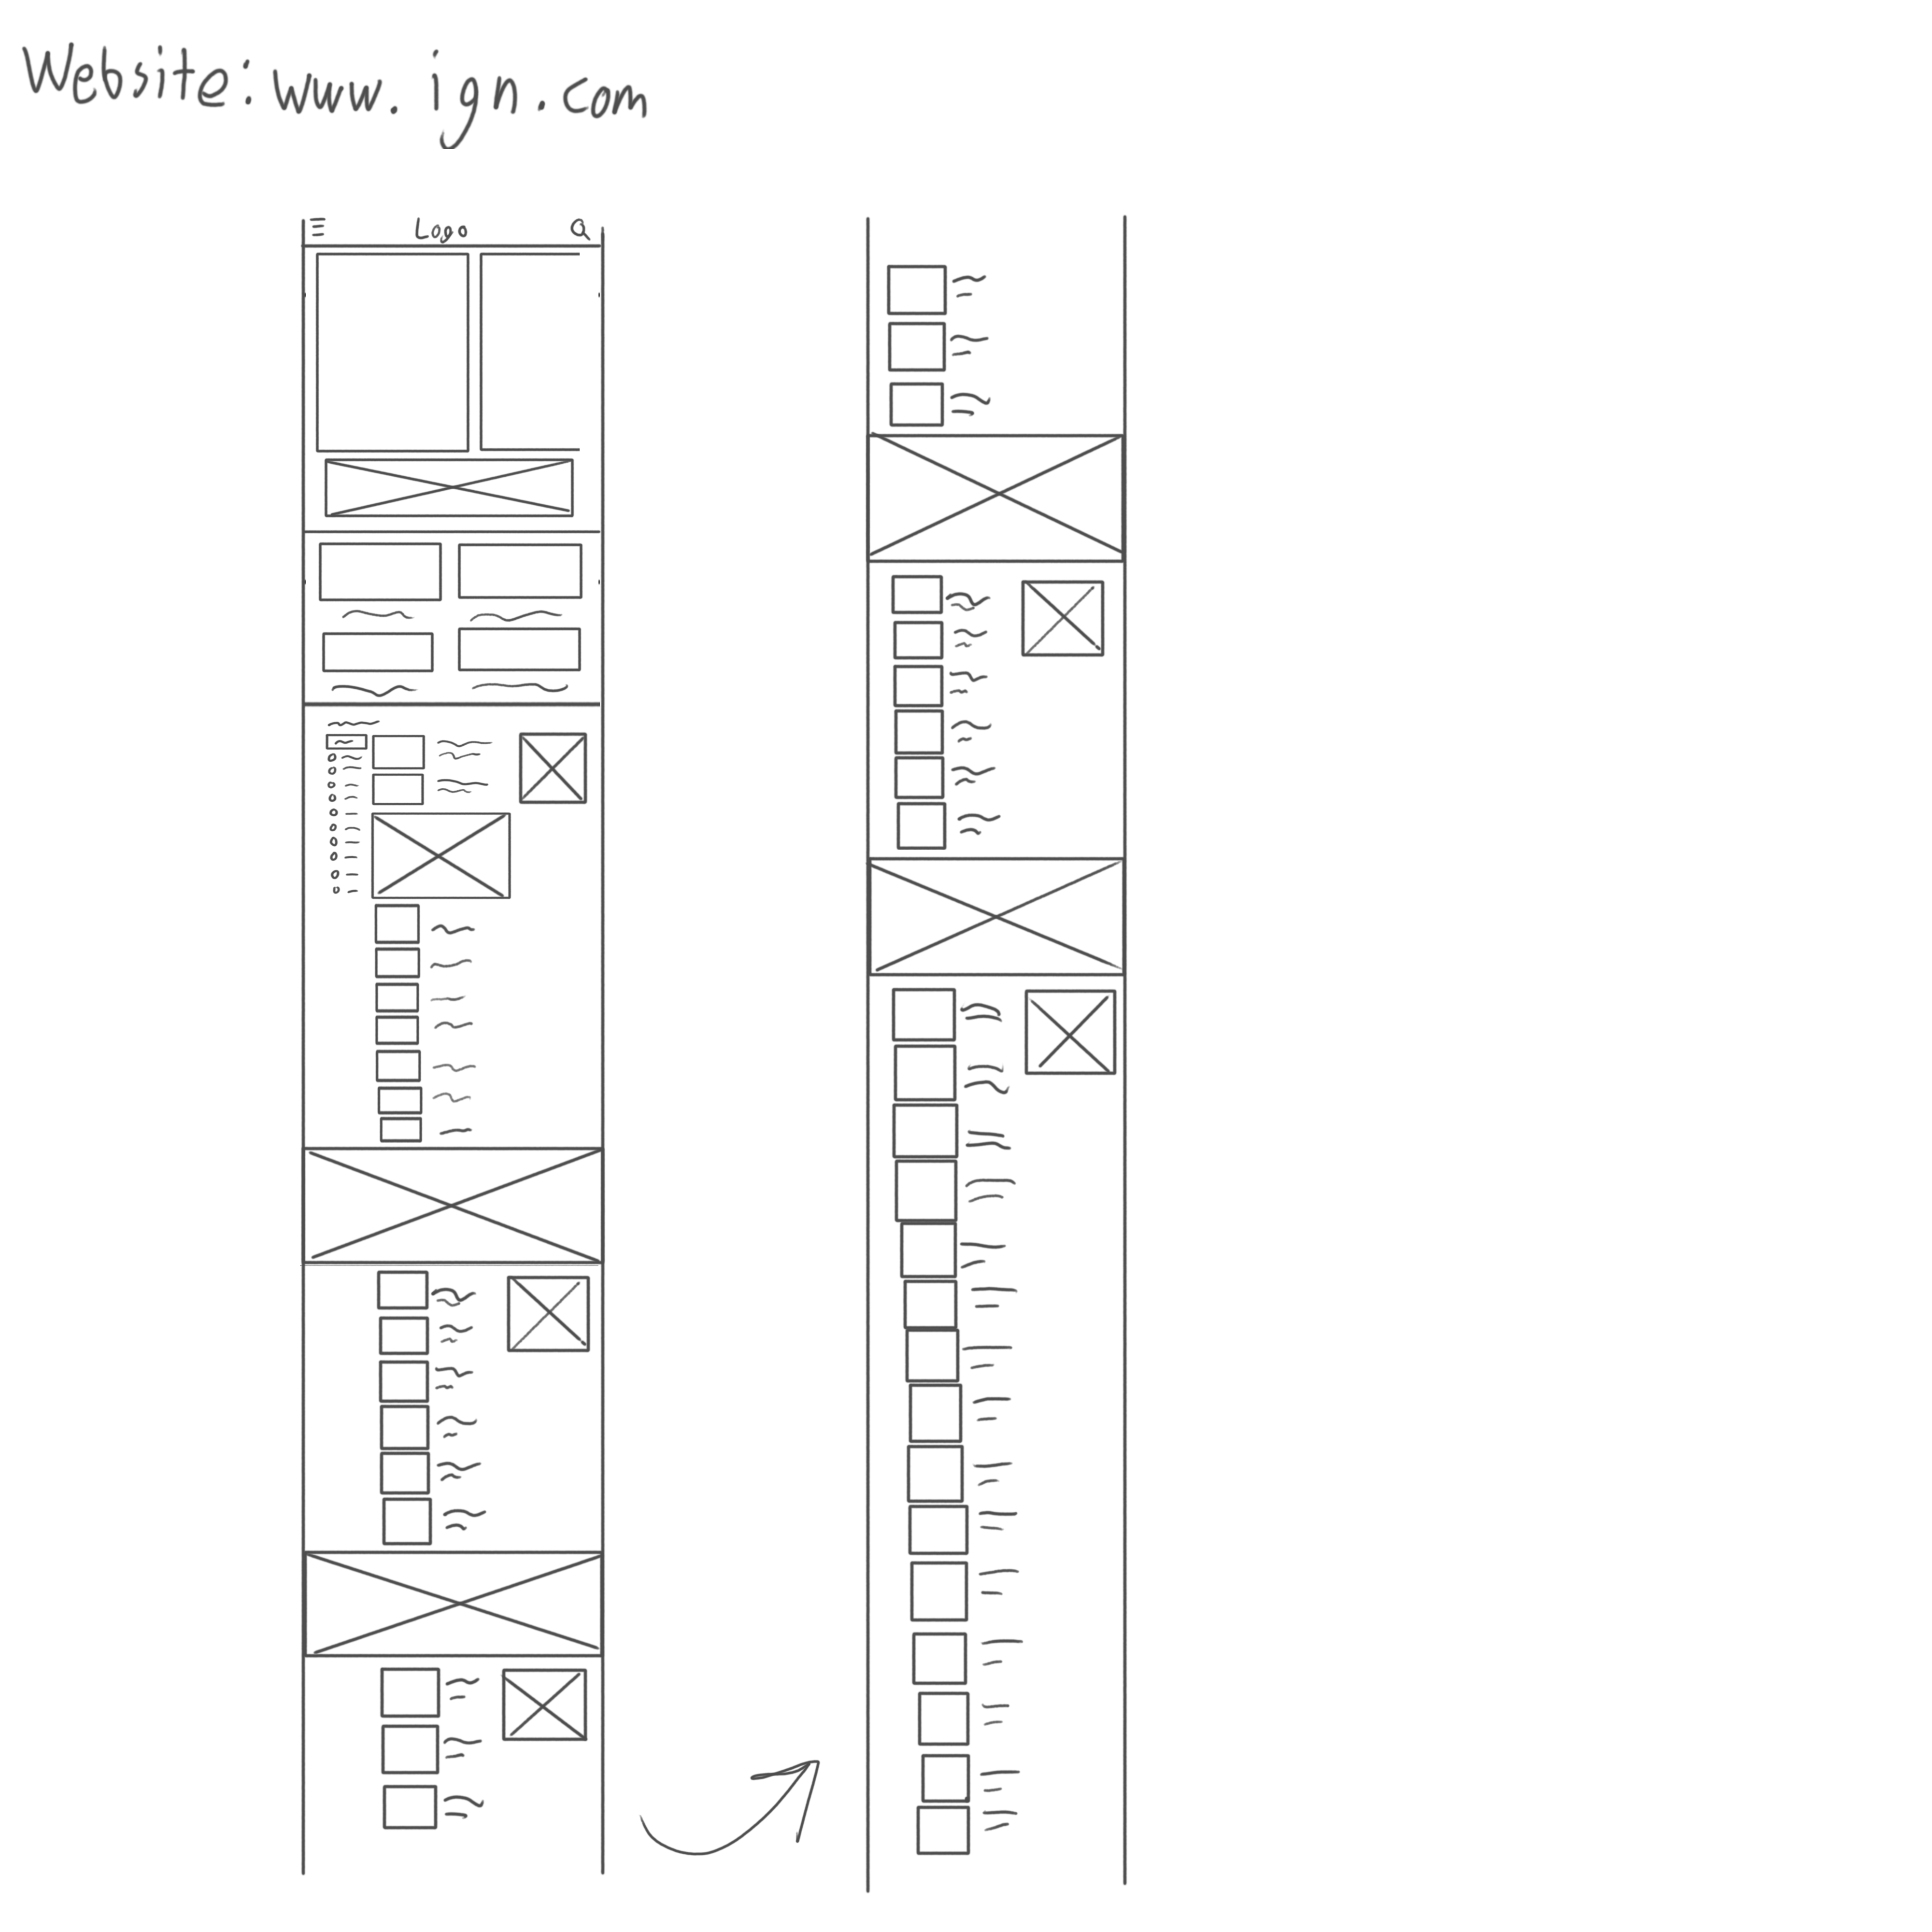 Website: www.ign.com
Logo